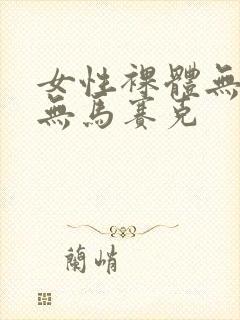 女性裸體無
無馬賽克
蘭峭